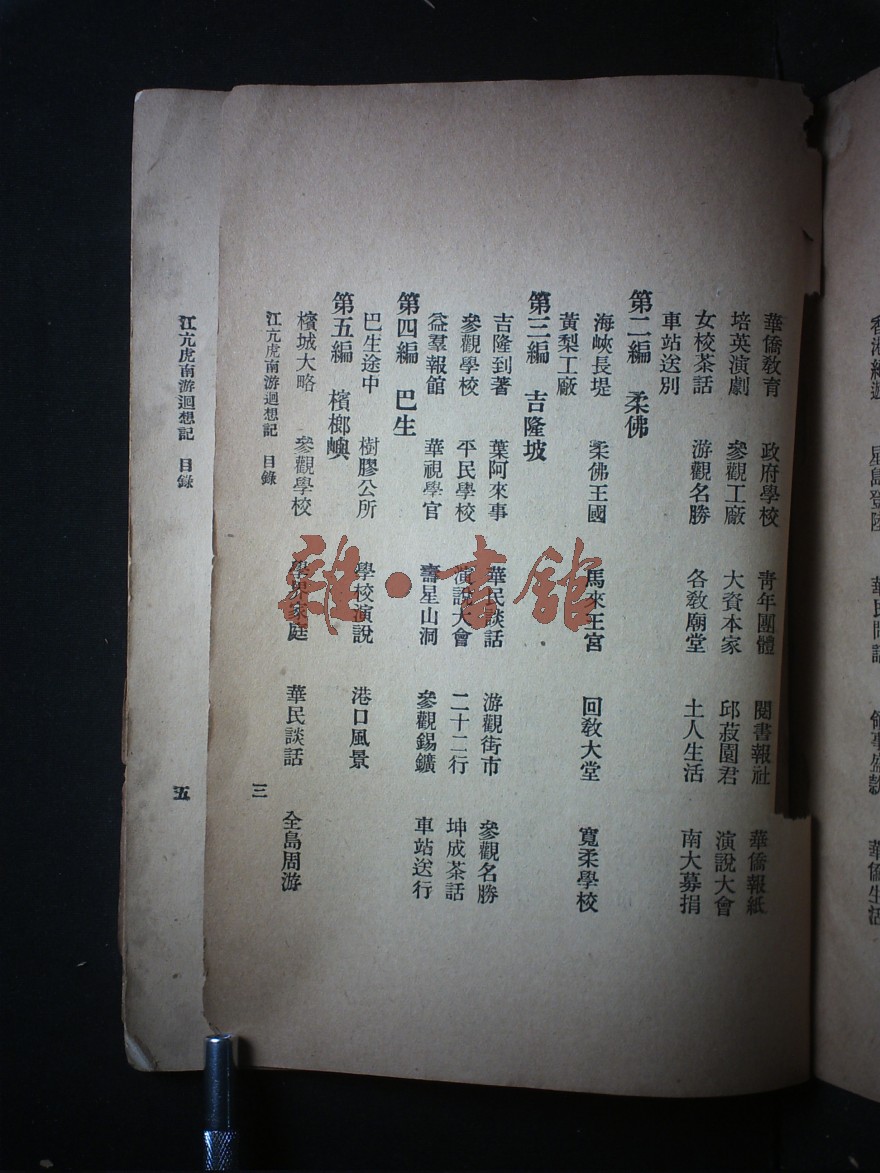 香港經過 星島登陸 華民問話 領事盛款 華僑生活
華僑教育 政府學校 青年團體 閱書報社 華僑報紙
培英演劇 參觀工廠 大資本家 邱菽園君 演說大會
女校茶話 游觀名勝 各教廟堂 土人生活 南大募捐
車站送別
第二編 柔佛
海峽長堤 柔佛王國 馬來王宮 回教大堂 寬柔學校
黃梨工廠
第三編 吉隆坡
吉隆到著 葉阿來事 華民談話 游觀街市 參觀名勝
參觀學校 平民學校 演說大會 二十二行 坤成茶話
益羣報館 華視學官 壽星山洞 參觀錫鑛 車站送行
第四編 巴生
巴生途中 樹膠公所 學校演說 港口風景
第五編 檳榔嶼
檳城大略 參觀學校 學界家庭 華民談話 全島周游
江亢虎南游迴想記 目錄 三
江亢虎南游迴想記 目錄 五
雜·書館